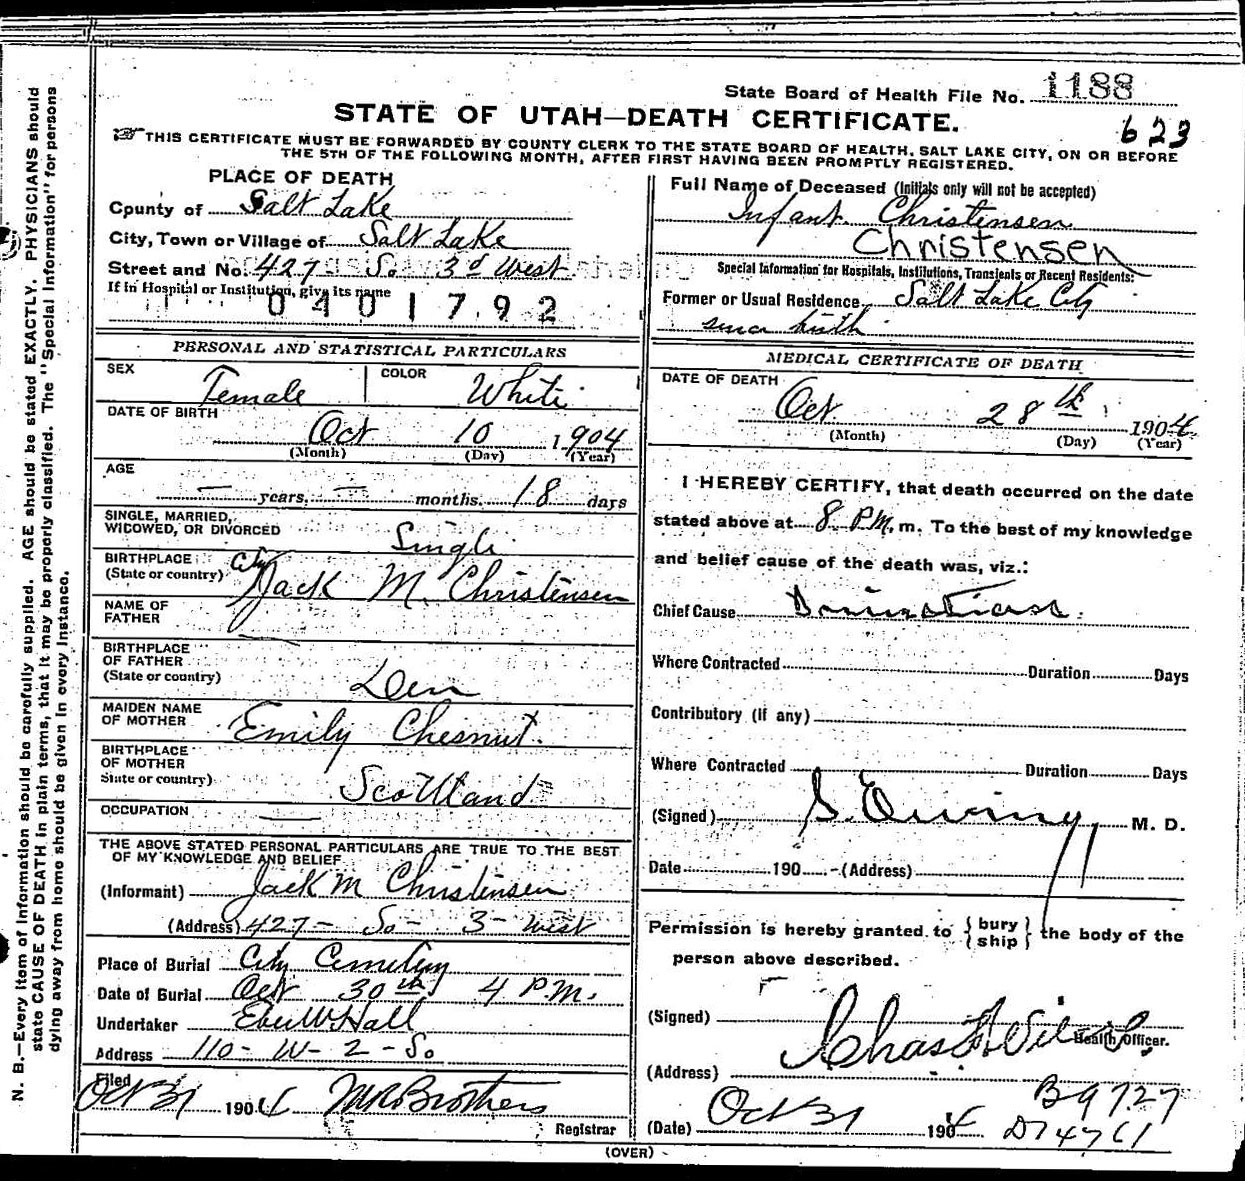 State Board of Health File No. 1188
STATE OF UTAH—DEATH CERTIFICATE.
623
THIS CERTIFICATE MUST BE FORWARDED BY COUNTY CLERK TO THE STATE BOARD OF HEALTH, SALT LAKE CITY, ON OR BEFORE
THE 5TH OF THE FOLLOWING MONTH, AFTER FIRST HAVING BEEN PROMPTLY REGISTERED.
N. B.—Every item of information should be carefully supplied. AGE should be stated EXACTLY. PHYSICIANS should
state CAUSE OF DEATH in plain terms, that it may be properly classified. The "Special Information" for persons
dying away from home should be given in every instance.
PLACE OF DEATH
County of Salt Lake
City, Town or Village of Salt Lake
Street and No. 427 So 3d West
If in Hospital or Institution, give its name
0401792
PERSONAL AND STATISTICAL PARTICULARS
SEX Female
COLOR White
DATE OF BIRTH
Oct 10 1904
(Month) (Day) (Year)
AGE
— years — months 18 days
SINGLE, MARRIED,
WIDOWED, OR DIVORCED Single
BIRTHPLACE City
(State or country)
Jack M. Christensen
NAME OF
FATHER
BIRTHPLACE
OF FATHER
(State or country) Den
MAIDEN NAME
OF MOTHER Emily Chesnut
BIRTHPLACE
OF MOTHER
State or country) Scottland
OCCUPATION —
THE ABOVE STATED PERSONAL PARTICULARS ARE TRUE TO THE BEST
OF MY KNOWLEDGE AND BELIEF
(Informant) Jack M Christensen
(Address) 427 - So - 3 - West
Place of Burial City Cemetery
Date of Burial Oct 30th 4 P.M.
Undertaker Eber W Hall
Address 110 - W - 2 - So
Filed
Oct 31 1904 M R Brothers
Registrar
Full Name of Deceased (Initials only will not be accepted)
Infant Christensen
Christensen
Special Information for Hospitals, Institutions, Transients or Recent Residents:
Former or Usual Residence Salt Lake City
since birth
MEDICAL CERTIFICATE OF DEATH
DATE OF DEATH
Oct 28th 1904
(Month) (Day) (Year)
I HEREBY CERTIFY, that death occurred on the date
stated above at 8 P.M. m. To the best of my knowledge
and belief cause of the death was, viz.:
Chief Cause
Where Contracted Duration Days
Contributory (if any)
Where Contracted Duration Days
(Signed) S. Ewing M. D.
Date 190 - (Address)
Permission is hereby granted to { bury ship } the body of the
person above described.
(Signed) Chas
Health Officer.
(Address)
(Date) Oct 31 1904
B9727
D74761
(OVER)